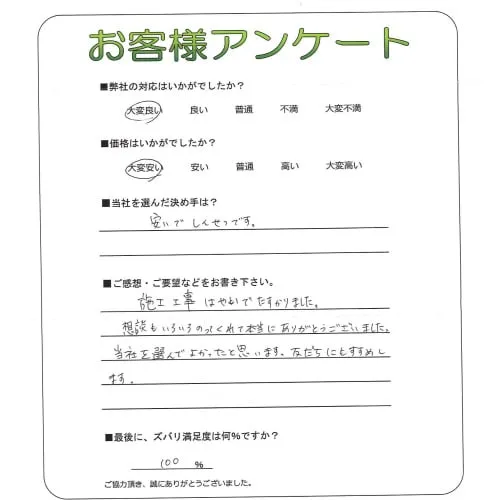 お客様アンケート
■弊社の対応はいかがでしたか？
大変良い 良い 普通 不満 大変不満
■価格はいかがでしたか？
大変安い 安い 普通 高い 大変高い
■当社を選んだ決め手は？
安いで しんせつです。
■ご感想・ご要望などをお書き下さい。
施工工事 はやいで たすかりました。
想談もいろいろのってくれて本当に ありがとうございました。
当社を選んで よかったと思います。友だちにもすすめし
ます。
■最後に、ズバリ満足度は何%ですか？
100 %
ご協力頂き、誠にありがとうございました。